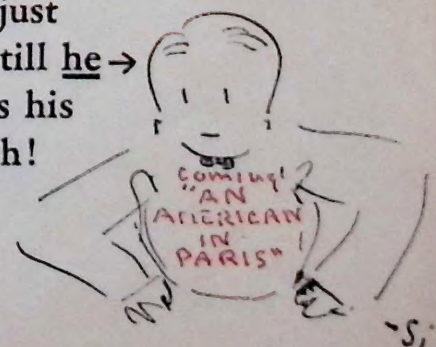 just
till he →
s his
h!
Coming!
"AN
AMERICAN
IN
PARIS"!
-S,